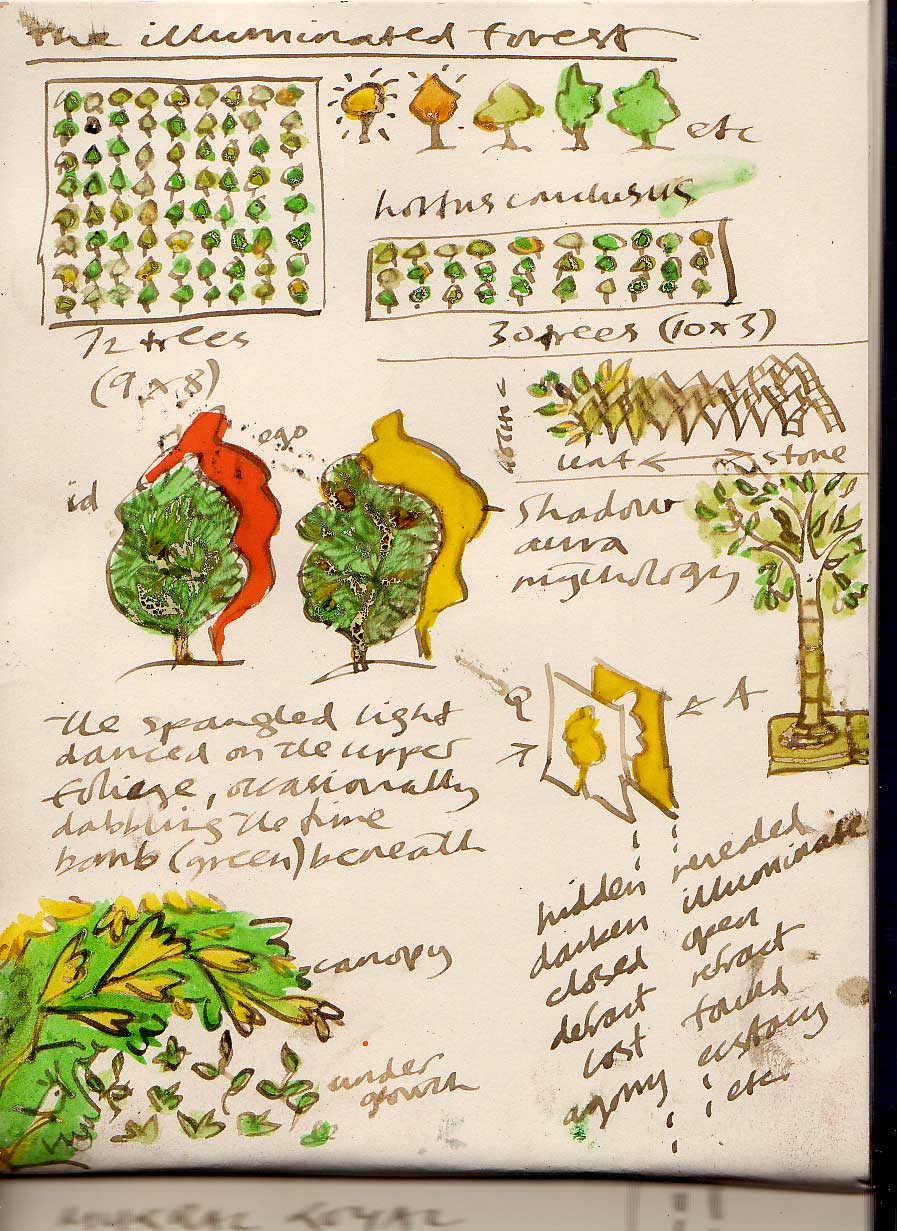 The illuminated forest
etc
hortus conclusus
72 trees
(9 x 8)
30 trees (10 x 3)
leaf ↔ stone
id
ego
Shadow
aura
mythology
Q
A
the spangled light
danced on the upper
foliage, occasionally
dabbling the time
bomb (green) beneath
hidden revealed
darken illuminate
closed open
defract refract
lost found
agony ecstacy
etc
canopy
under
growth